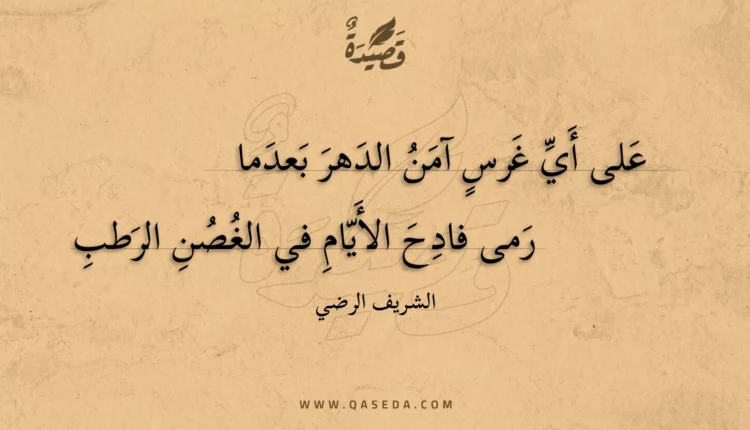 قَصِيدَةٌ
عَلى أَيِّ غَرسٍ آمَنُ الدَهرَ بَعدَما
رَمى فادِحَ الأَيّامِ في الغُصُنِ الرَطبِ
الشريف الرضي
WWW.QASEDA.COM